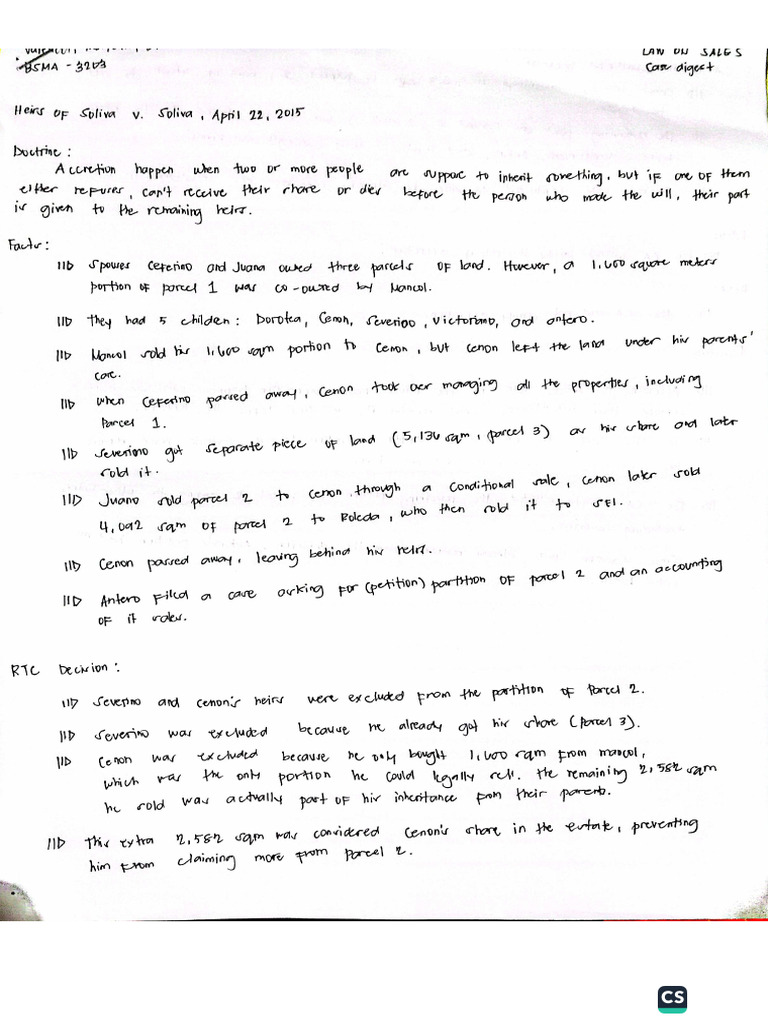 BSMA - 3203
LAW ON SALES
Case digest
Heirs OF Soliva v. Soliva, April 22, 2015
Doctrine :
Accretion happen when two or more people are suppose to inherit something, but if one of them
either refuses, can't receive their share or dies before the person who made the will, their part
is given to the remaining heirs.
Facts :
Spouses Ceferino and Juana owned three parcels of land. However, a 1,600 square meters
portion of parcel 1 was co-owned by Mancol.
They had 5 childen : Dorotea, Cenon, Severino, Victoriano, and Antero.
Mancol sold his 1,600 sqm portion to Cenon, but Cenon left the land under his parents'
care.
When Ceferino passed away, Cenon took over managing all the properties, including
Parcel 1.
Severino got separate piece of land (5,136 sqm, parcel 3) as his share and later
sold it.
Juana sold parcel 2 to Cenon through a conditional sale, Cenon later sold
4,092 sqm of parcel 2 to Roleda, who then sold it to SFI.
Cenon passed away, leaving behind his heirs.
Antero filed a case asking for (petition) partition of parcel 2 and an accounting
of it sales.
RTC Decision :
Severino and Cenon's heirs were excluded from the partition of Parcel 2.
Severino was excluded because he already got his share (Parcel 3).
Cenon was excluded because he only bought 1,600 sqm from Mancol,
which was the only portion he could legally sell. The remaining 2,582 sqm
he sold was actually part of his inheritance from their parents.
This extra 2,582 sqm was considered Cenon's share in the estate, preventing
him from claiming more from Parcel 2.
CS